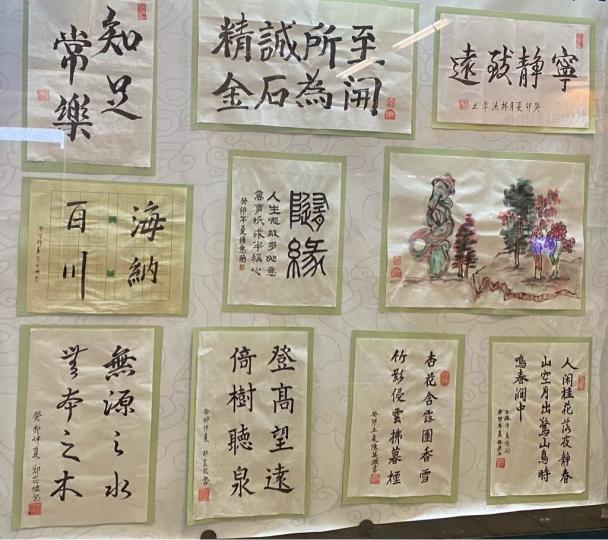 知足
常樂
精誠所至
金石為開
寧靜致遠
癸卯夏月林
海納
百川
隨緣
人生哪能多如意
萬事祇求半稱心
癸卯年夏
無源之水
無本之木
癸卯仲夏
登高望遠
倚樹聽泉
癸卯仲夏
杏花含露團香雪
竹影侵雲拂暮煙
癸卯孟夏陳
人闲桂花落夜静春
山空月出驚山鳥時
鳴春澗中
癸卯年夏